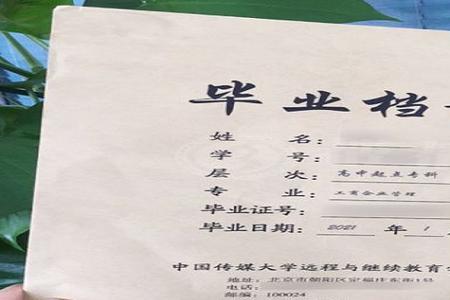 毕业档
姓名：
学号：
层次：高中起点专科
专业：工商企业管理
毕业证号：
毕业日期：2021年1
中国传媒大学远程与继续教育
地址：北京市朝阳区定福庄东街1号
电话：
邮编：100024